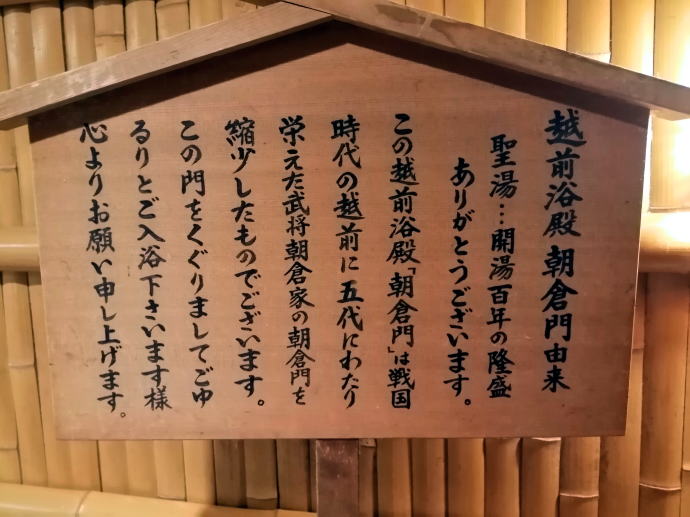 越前浴殿 朝倉門由来
聖湯…開湯百年の隆盛
ありがとうございます。
この越前浴殿「朝倉門」は戦国
時代の越前に五代にわたり
栄えた武将朝倉家の朝倉門を
縮少したものでございます。
この門をくぐりましてごゆ
るりとご入浴下さいます様
心よりお願い申し上げます。